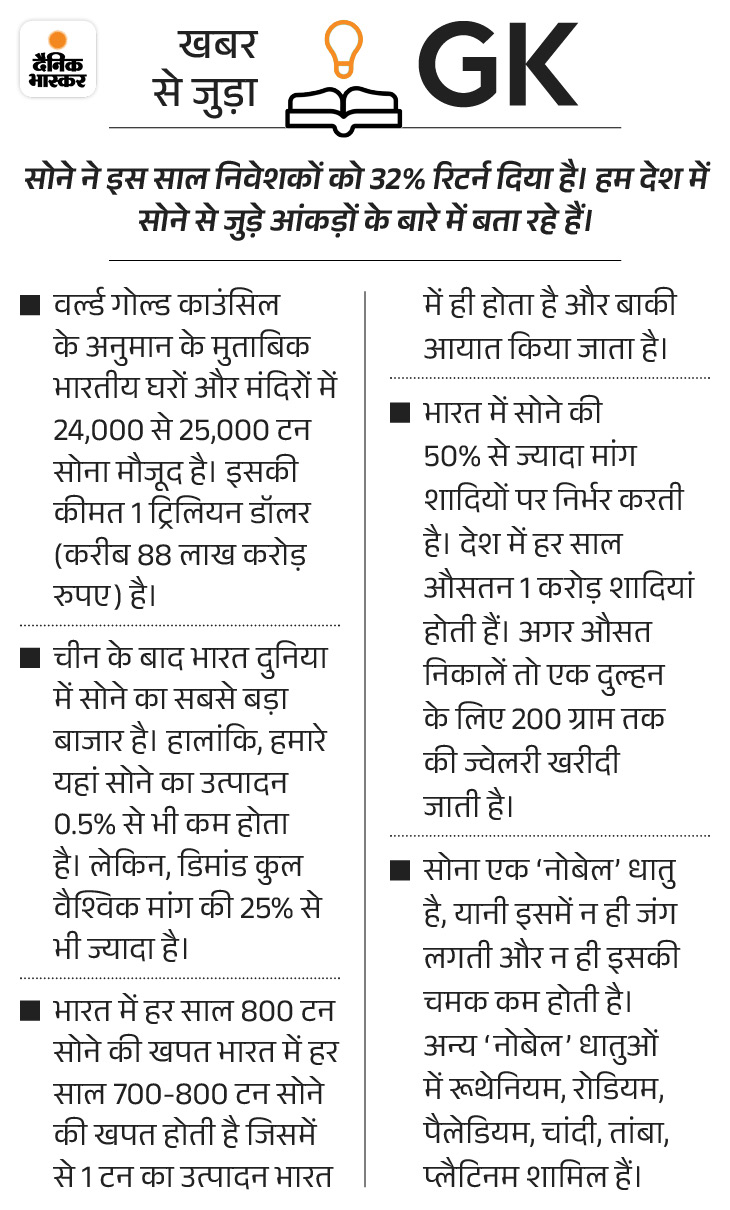 दैनिक
भास्कर
खबर
से जुड़ा
GK
सोने ने इस साल निवेशकों को 32% रिटर्न दिया है। हम देश में
सोने से जुड़े आंकड़ों के बारे में बता रहे हैं।
वर्ल्ड गोल्ड काउंसिल
के अनुमान के मुताबिक
भारतीय घरों और मंदिरों में
24,000 से 25,000 टन
सोना मौजूद है। इसकी
कीमत 1 ट्रिलियन डॉलर
(करीब 88 लाख करोड़
रुपए) है।
चीन के बाद भारत दुनिया
में सोने का सबसे बड़ा
बाजार है। हालांकि, हमारे
यहां सोने का उत्पादन
0.5% से भी कम होता
है। लेकिन, डिमांड कुल
वैश्विक मांग की 25% से
भी ज्यादा है।
भारत में हर साल 800 टन
सोने की खपत भारत में हर
साल 700-800 टन सोने
की खपत होती है जिसमें
से 1 टन का उत्पादन भारत
में ही होता है और बाकी
आयात किया जाता है।
भारत में सोने की
50% से ज्यादा मांग
शादियों पर निर्भर करती
है। देश में हर साल
औसतन 1 करोड़ शादियां
होती हैं। अगर औसत
निकालें तो एक दुल्हन
के लिए 200 ग्राम तक
की ज्वेलरी खरीदी
जाती है।
सोना एक ‘नोबेल’ धातु
है, यानी इसमें न ही जंग
लगती और न ही इसकी
चमक कम होती है।
अन्य ‘नोबेल’ धातुओं
में रूथेनियम, रोडियम,
पैलेडियम, चांदी, तांबा,
प्लैटिनम शामिल हैं।